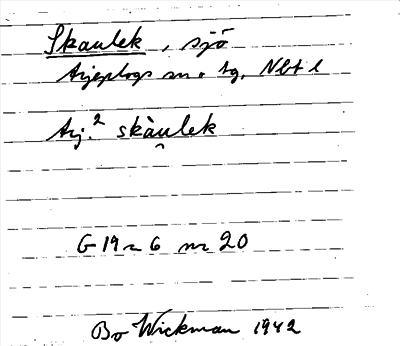 Skaulek, sjö
Arjeplogs sn. Ag. Nbt l
Arj.² skàulek
G 19 ~ 6 nr 20
Bo Wickman 1942